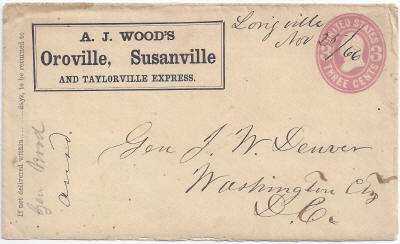 A. J. WOOD'S
Oroville, Susanville
AND TAYLORVILLE EXPRESS.
Longville
Nov 25/66
UNITED STATES
THREE CENTS
Gen J. W. Denver
Washington City
D.C.
If not delivered within ........ days, to be returned to
Gen
ansd.